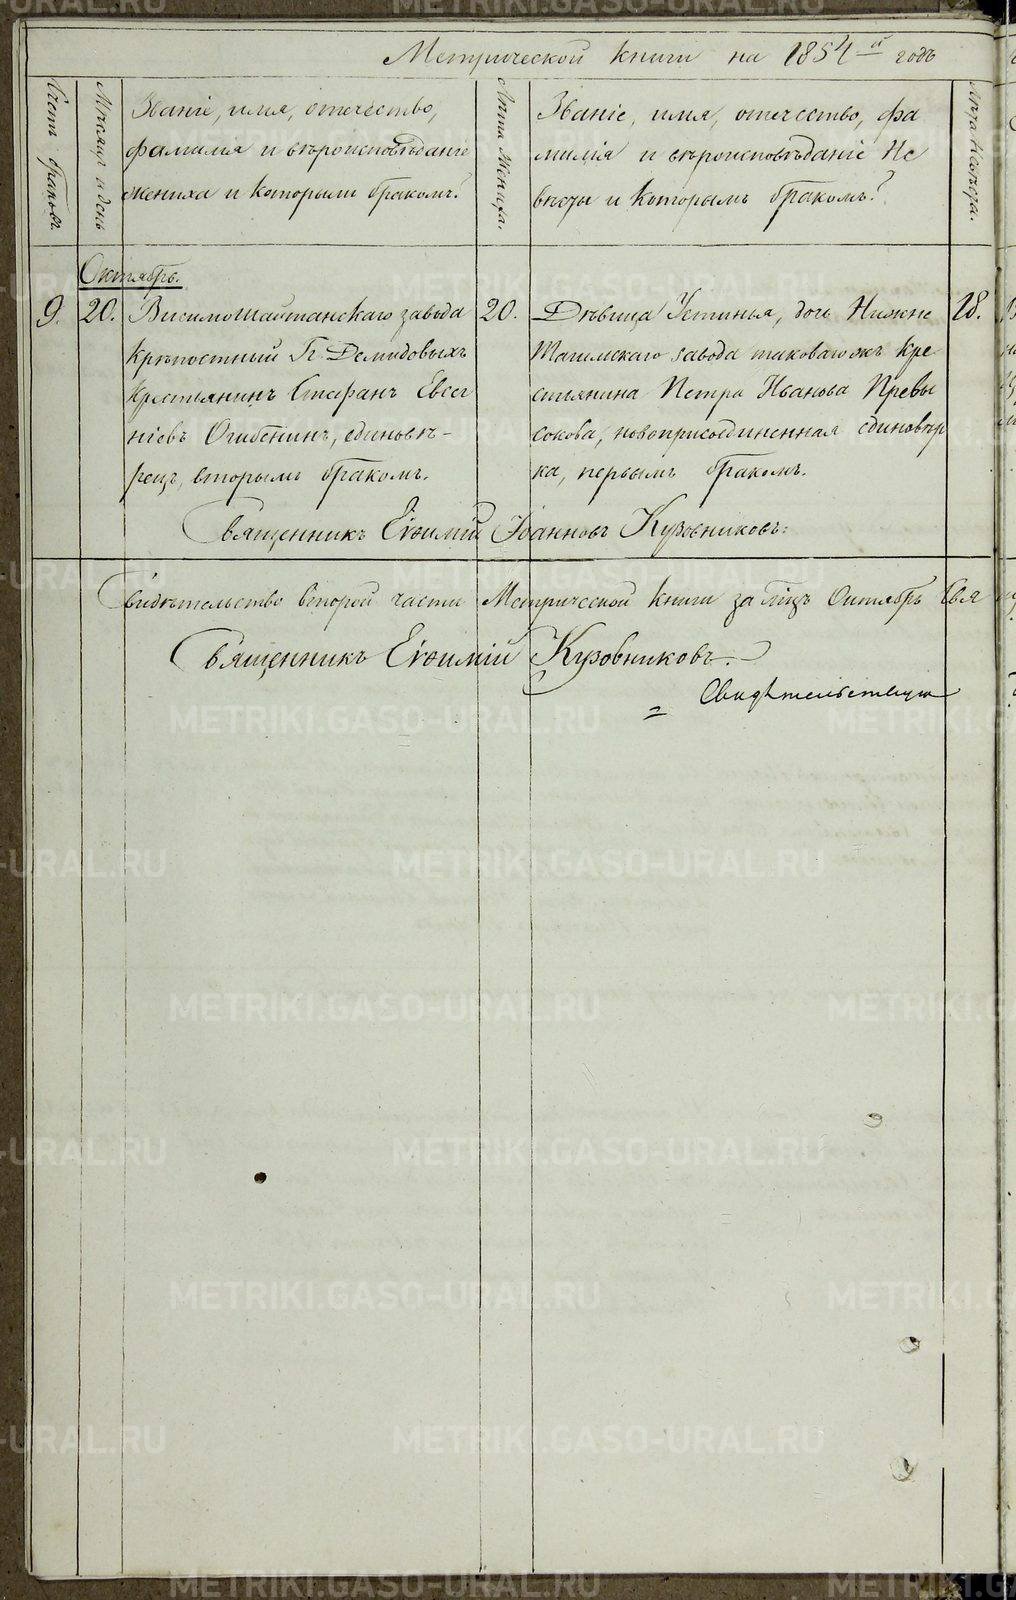 Метрической книги на 1854й годъ
Счетъ браковъ.
Мѣсяцъ и день
Званіе, имя, отечество,
фамилія и вѣроисповѣданіе
жениха и которымъ бракомъ?
Лѣта Жениха.
Званіе, имя, отечество, фа
милія и вѣроисповѣданіе Не
вѣсты и которымъ бракомъ?
Лѣта Невѣсты.
Октябрь.
9. 20.
Висимошайтанскаго завода
крѣпостный Гг. Демидовыхъ
крестьянинъ Стефанъ Евсег
ніевъ Огибенинъ, единовѣ-
рецъ, вторымъ бракомъ.
20.
Дѣвица Устинья, дочь Нижне
Тагилскаго завода таковагожъ кре
стьянина Петра Иванова Превы
сокова, новоприсоединенная единовѣр
ка, первымъ бракомъ.
18.
Священникъ Евѳимій Іоанновъ Кузовниковъ:
Свидѣтельство второй части Метрической книги за мцъ Октябрь
Священникъ Евѳимій Кузовниковъ.
Свидѣтельствую
METRIKI.GASO-URAL.RU